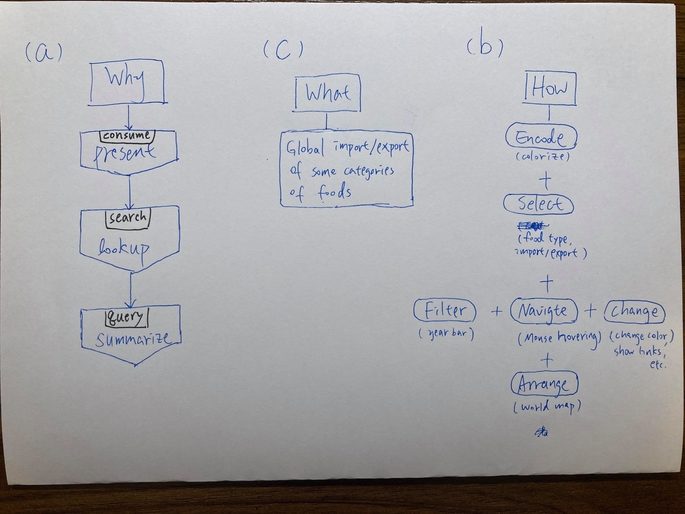 (a)
Why
consume
present
search
lookup
query
summarize
(C)
What
Global import/export
of some categories
of foods
(b)
How
Encode
(colorize)
+
Select
(food type,
import/export)
+
Filter + Navigte + Change
(year bar) (Mouse hovering) (change color,
show links,
etc.
+
Arrange
(world map)